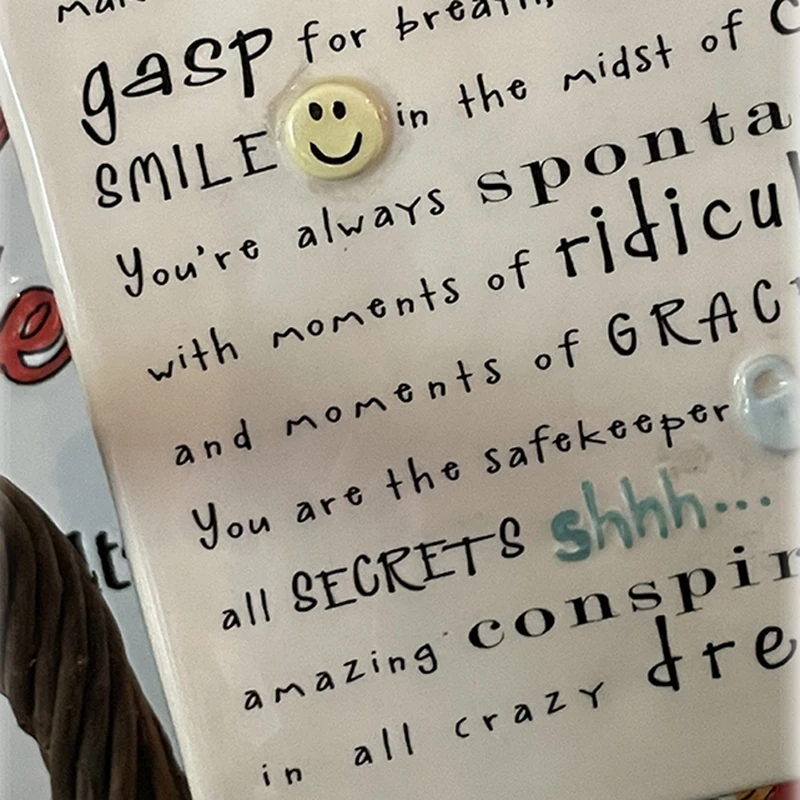 gasp for breath,
SMILE in the midst of
You're always sponta
with moments of ridicul
and moments of GRAC
You are the safekeeper
all SECRETS shhh...
amazing conspir
in all crazy dre
e